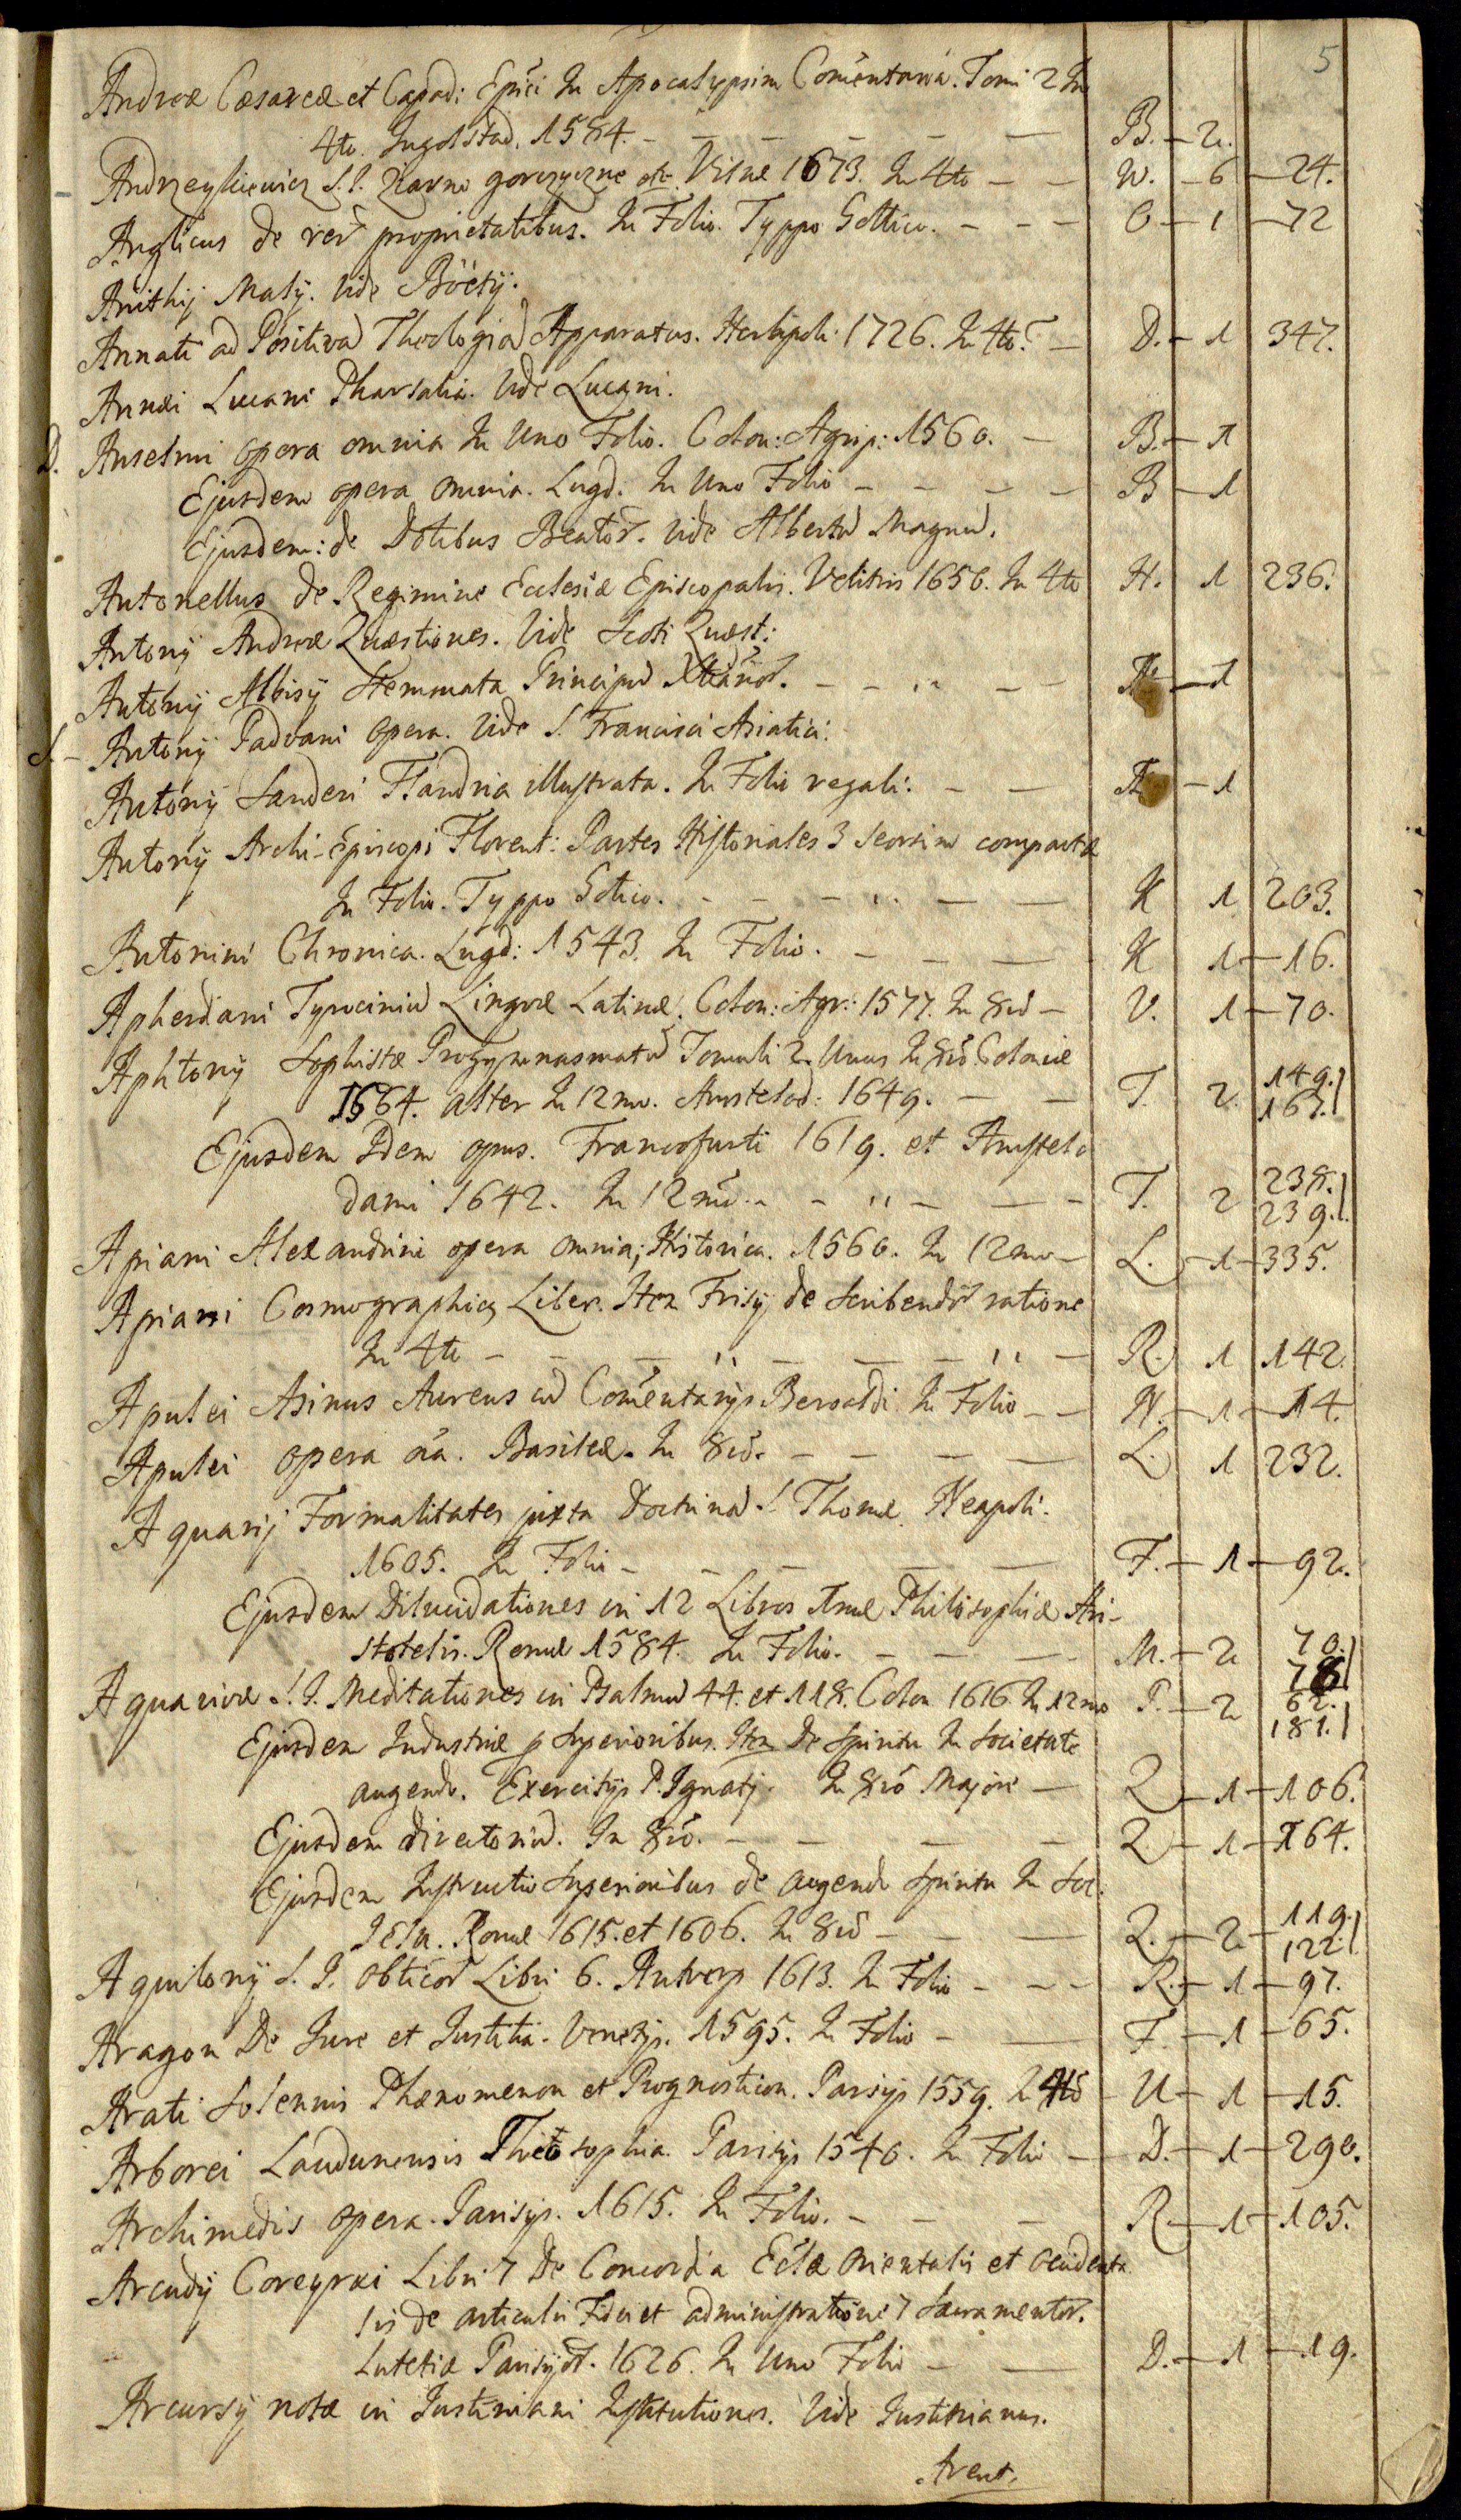 5
Andreæ Cæsareæ et Capad: Epĩci In Apocalypsim Com̃entaria. Tomi 2 In
4to. Ingolstad. 1584. - - - - - - B. - 2.
Andrzeykiewicz S. J. Ziarno gorczyczne etc. Vilnæ 1673. In 4to - - W. - 6 - 24.
Anglicus de rer̃ proprietatibus. In Folio. Typpo Gottico. - - - O - 1 - 72
Anithij Malÿ. Vide Boëtÿ.
Annati ad Positivã Theologiã Apparatus. Herbipoli: 1726. In 4to. - D. - 1 347.
Annæi Lucani Pharsalia. Vide Lucani.
D. Anselmi opera omnia In Uno Folio. Colon: Agrip: 1560. - B. - 1
Ejusdem opera omnia. Lugd. In Uno Folio - - - - B - 1
Ejusdem: de Dotibus Beator̃. Vide Albertũ Magnũ.
Antonellus de Regimine Ecclesiæ Episcopalis. Velitris 1656. In 4to H. 1 236.
Antonÿ Andreæ Quæstiones. Vide Scoti Quæst:
Antonÿ Albisÿ Stemmata Principũ Xtianor̃. - - - - - - 1
S. - Antonÿ Padvani opera. Vide S. Francisci Asiatici.
Antonÿ Sanderi Flandria illustrata. In Folio regali. - - - 1
Antonÿ Archi-Episcopi Florent: Partes Historiales 3 seorsim compactæ
In Folio. Typpo Gotico. - - - - - - K 1 203.
Antonini Chronica. Lugd: 1543. In Folio. - - - K 1 - 16.
Apherdiani Tyrociniũ Lingvæ Latinæ. Colon: Agr: 1577. In 8vo - V. 1 - 70.
Aphtonÿ Sophistæ Progymnasmatũ Tomuli 2. Unus In 8vo Coloniæ
1664. alter In 12mo. Amstelod: 1649. - - T. 2. 149. 167.
Ejusdem Idem opus. Francofurti 1619. et Amstelo
dami 1642. In 12mo - - - - - T. 2 238. 239.
Apiani Alexandrini opera omnia; Historica. 1560. In 12mo - L. - 1 - 335.
Apiani Cosmographicq Liber. Item Frisÿ de scribendor̃ ratione
In 4to - - - - - - - - R. 1 142.
Apulei Asinus Aureus cũ Com̃entarÿs Beroaldi. In Folio - - N. - 1 - 14.
Apulei opera oĩa. Basileæ. In 8vo. - - - - L. 1 232.
Aquarij Formalitates juxta Doctrinã S. Thomæ. Neapoli.
1605. In Folio - - - - F. - 1 - 92.
Ejusdem Dilucidationes in 12 Libros Primæ Philosophiæ Ari-
stotelis. Romæ 1584. In Folio. - - - - M. - 2 70. 78
Aquavivæ S. J. Meditationes in Psalmũ 44. et 118. Colon 1616 In 12mo P. - 2 62. 181.
Ejusdem Industriæ p Superioribus. Item De Spiritu In Societate
augendo. Exercitÿs P. Ignatÿ. In 8vo Majori - Q - 1 - 106.
Ejusdem directoriũ. In 8vo. - - - - Q - 1 - 164.
Ejusdem Instructio Superioribus de augendo Spiritu In Soc.
Jesu. Romæ 1615. et 1606. In 8vo - - - Q. - 2 - 119. 122.
Aquilonÿ S. J. Obticor̃ Libri 6. Antverp 1613. In Folio - - - R. - 1 - 97.
Aragon De Jure et Justitia. Venetÿs. 1595. In Folio - - F. - 1 - 65.
Arati Solennis Phænomenon et Prognosticon. Parisÿs 1559. In 4to - U - 1 - 15.
Arborei Laudunensis Theosophia. Parisÿs 1540. In Folio - D. - 1 - 290.
Archimedis opera. Parisÿs. 1615. In Folio. - - - R. - 1 - 105.
Arcudÿ Corcyræi Libri 7 De Concordia Ecl̃æ Orientalis et Occidenta
lis de articulis Fidei et administratione 7 Sacramentor̃.
Lutetiæ Parisÿor̃. 1626. In Uno Folio - - D. - 1 - 19.
Arcursÿ notæ in Justiniani Institutiones. Vide Justinianus.
Arent.